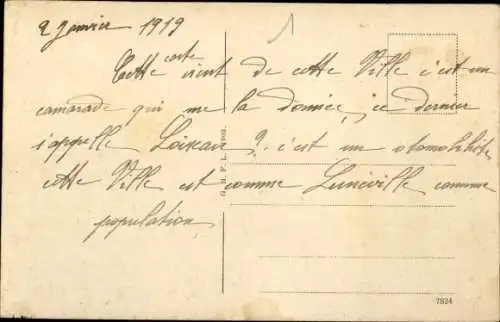 2 Janvier 1919
carte
Cette vient de cette Ville c'est un
camarade qui me la donnée, ce dernier
s'appelle Loiseau ? c'est un otomobiliste
cette Ville est comme Lunéville comme
population
7824